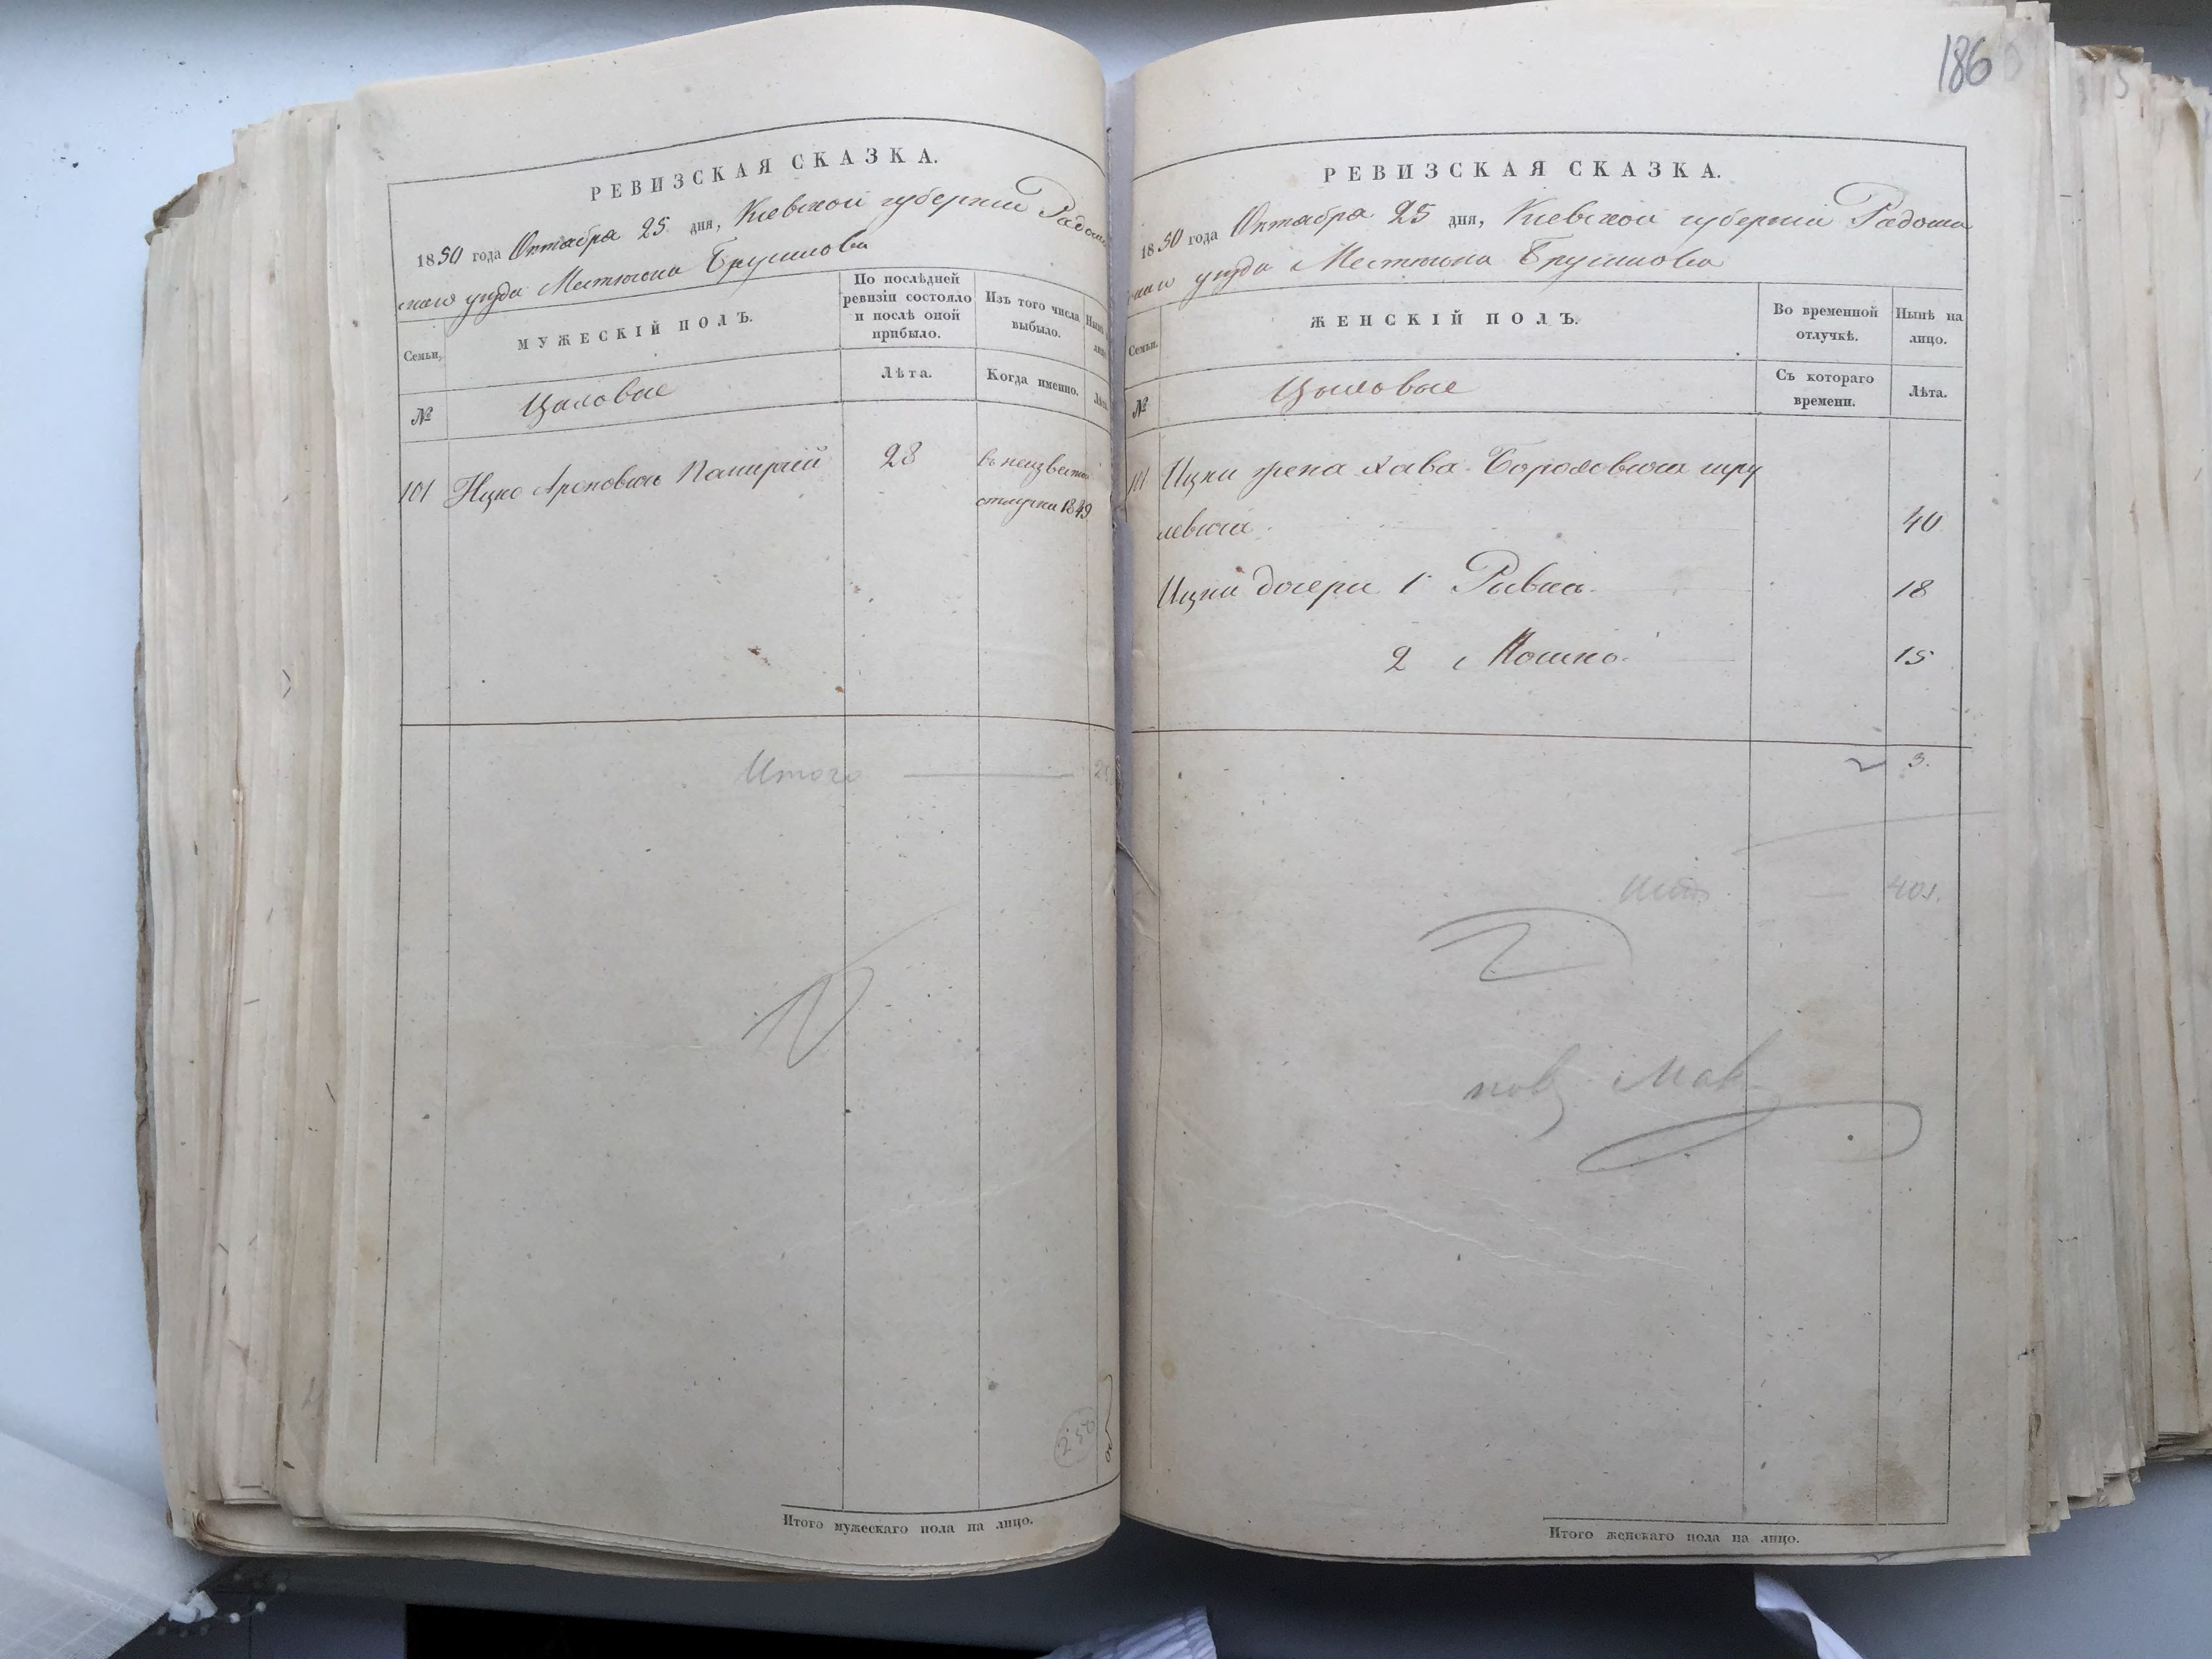 РЕВИЗСКАЯ СКАЗКА.
1850 года Октября 25 дня, Кіевской губерніи Радомы
скаго уѣзда Местечка Брусилова
Семьи,
МУЖЕСКІЙ ПОЛЪ.
По послѣдней ревизіи состояло и послѣ оной прибыло.
Изъ того числа выбыло.
№
Лѣта.
Когда именно.
101 Ицко Ароновичъ 28 въ неизвестн
отлучки 1849
Итого
250
Итого мужескаго пола на лицо.
186
РЕВИЗСКАЯ СКАЗКА.
1850 года Октября 25 дня, Кіевской губерніи Радомы
скаго уѣзда Местечка Брусилова
Семьи.
ЖЕНСКІЙ ПОЛЪ.
Во временной отлучкѣ.
Нынѣ на лицо.
№
Съ котораго времени.
Лѣта.
101 Ицки жена Хава
левичи 40
Ицки дочери 1 Ривка 18
2 Мошко 15
3.
401.
Итого женскаго пола на лицо.